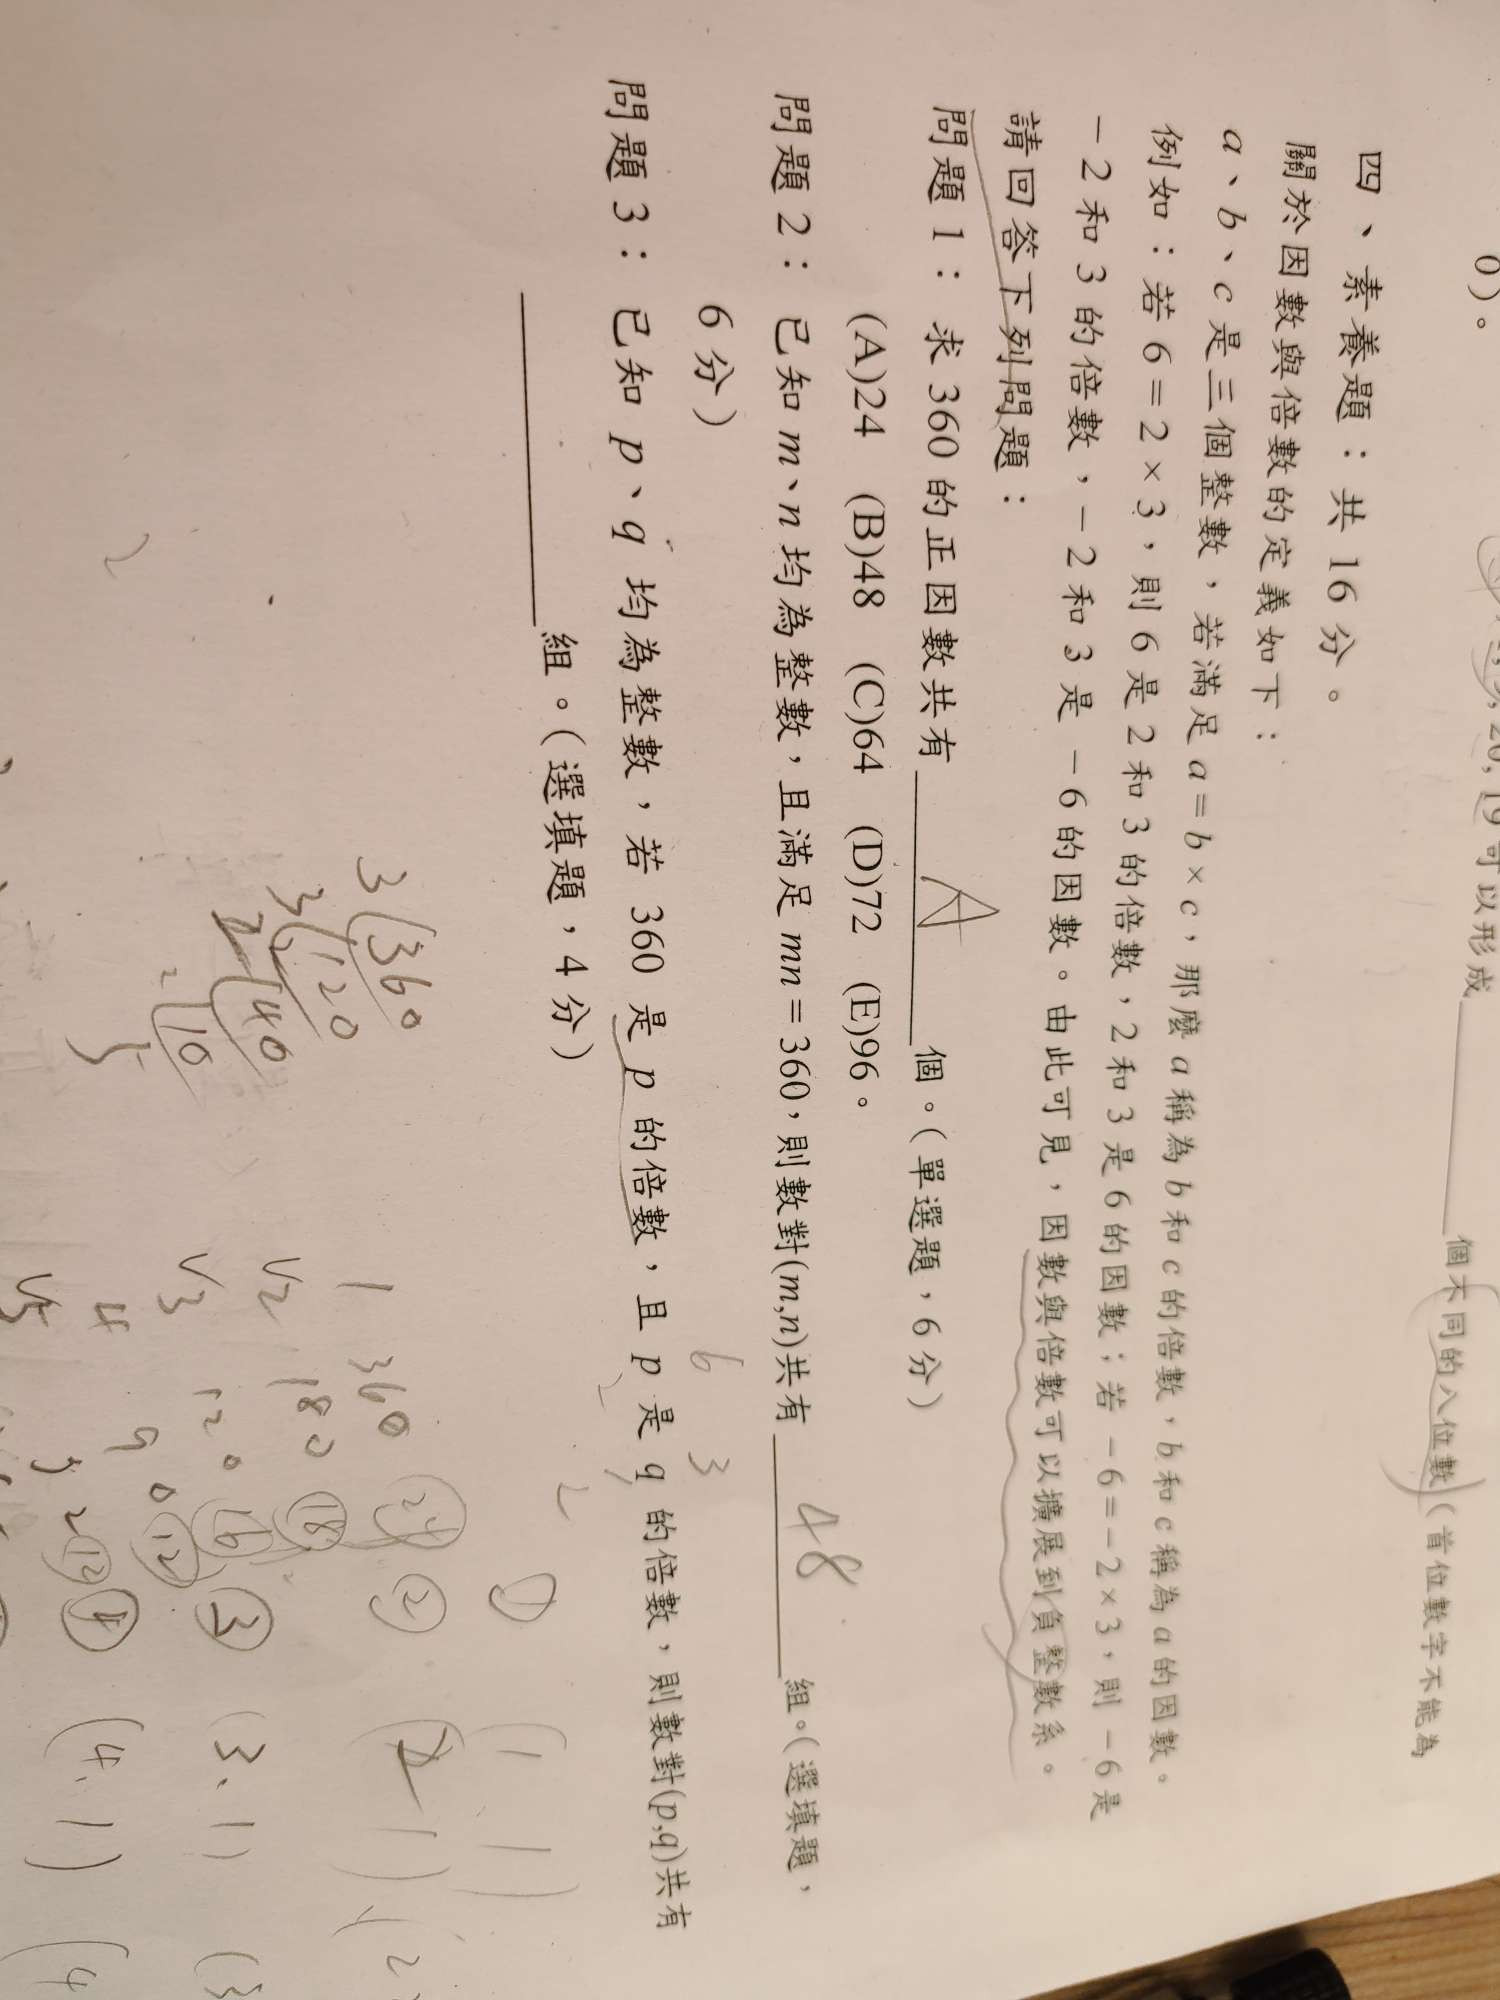 0)。
20, 19可以形成______個不同的八位數(首位數字不能為
四、素養題:共 16 分。
關於因數與倍數的定義如下:
a、b、c是三個整數,若滿足a=b×c,那麼a稱為b和c的倍數,b和c稱為a的因數。
例如:若6=2×3,則6是2和3的倍數,2和3是6的因數;若-6=-2×3,則-6是
-2和3的倍數,-2和3是-6的因數。由此可見,因數與倍數可以擴展到負整數系。
請回答下列問題:
問題1: 求360的正因數共有 A 個。(單選題,6分)
(A)24 (B)48 (C)64 (D)72 (E)96。
問題2: 已知m、n均為整數,且滿足mn=360,則數對(m,n)共有 48 組。(選填題,
6分)
問題3: 已知 p、q 均為整數,若 360 是 p 的倍數,且 p 是 q 的倍數,則數對(p,q)共有
______組。(選填題,4分)
6 3
3 360
3 120
2 40
2 10
5
1 360 24 2
√2 180 18
√3 120 16 3
4 90 12
√5 72 12 4
(1 1)
(2 1) (2
(3.1) (3
(4.1) (4